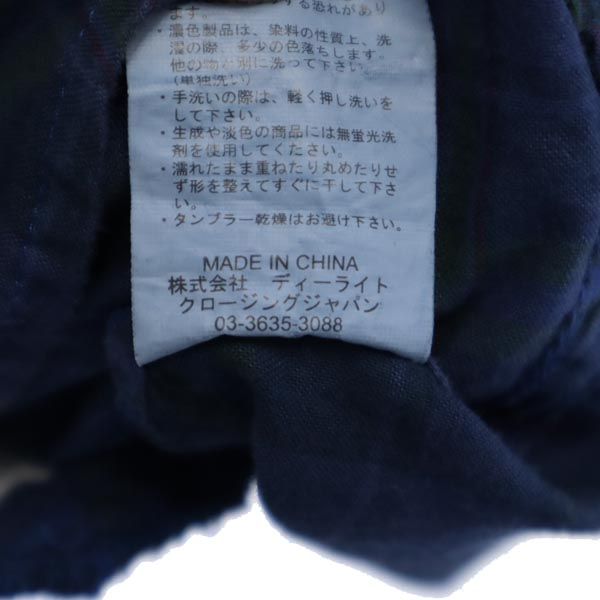 する恐れがあり
ます。
・濃色製品は、染料の性質上、洗
濯の際、多少の色落ちします。
他の物が別に洗って下さい。
(単独洗い)
・手洗いの際は、軽く押し洗いを
して下さい。
・生成や淡色の商品には無蛍光洗
剤を使用してください。
・濡れたまま重ねたり丸めたりせ
ず形を整えてすぐに干して下さ
い。
・タンブラー乾燥はお避け下さい。
MADE IN CHINA
株式会社 ディーライト
クロージングジャパン
03-3635-3088